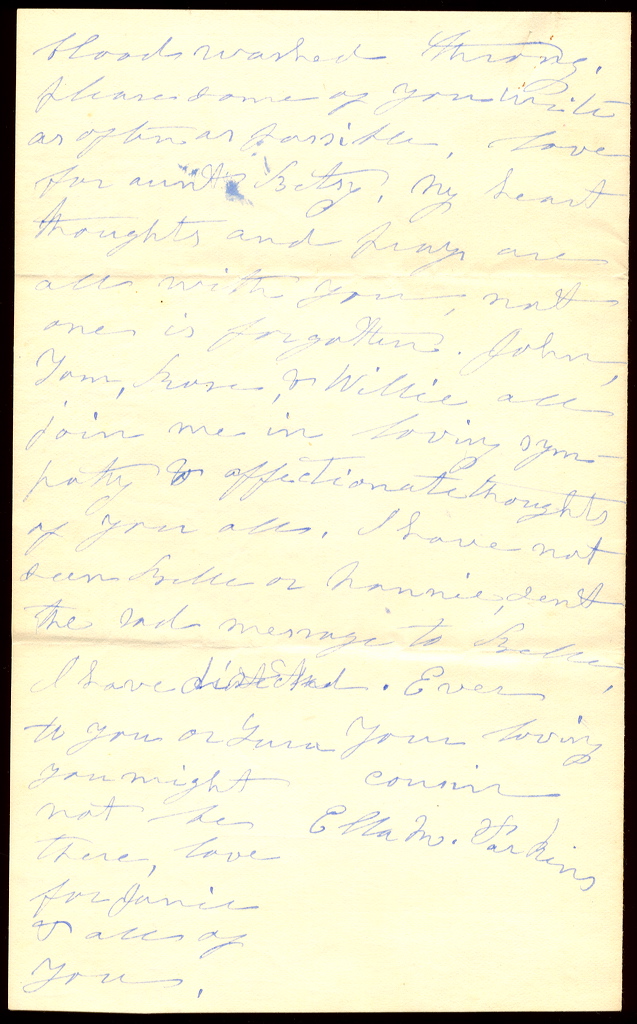 blood washed throng.
please some of you write
as often as possible, love
for aunt Betsy. My heart
thoughts and prays are
all with you, not
one is forgotten. John,
Tom, Rose, & Willie all
join me in loving sym-
pathy & affectionate thoughts
of you all. I have not
seen Belle or Nannie, sent
the sad message to Belle,
I have directed. Ever
to you or Your loving
you might cousin
not be Ella M. Parkins
there, love
for Janie
& all of
you.